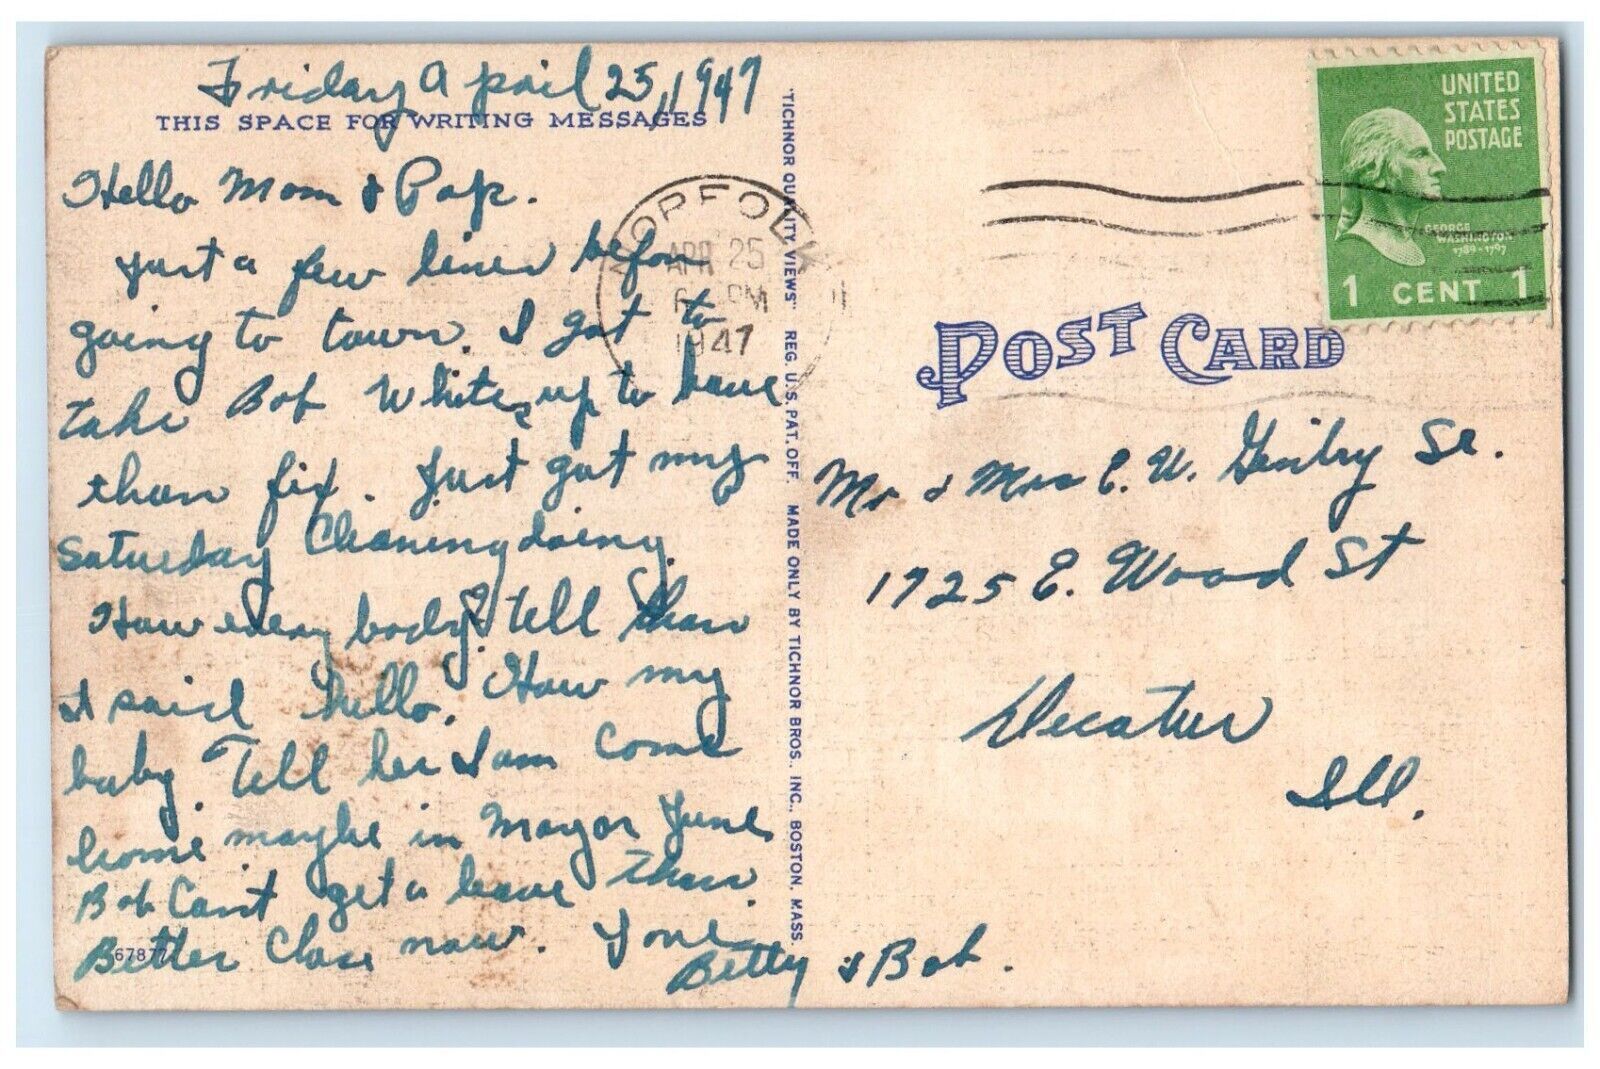 Friday April 25, 1947
THIS SPACE FOR WRITING MESSAGES
Hello Mom & Pop.
Just a few lines befor
going to town. I got to
take Bob Whites up to have
tham fix. Just got my
Saturday Cleaning doing.
How every body? tell tham
I said hello. How my
baby. Tell her I am come
home maybe in May or June
Bob Can't get a leave than.
Better Close now. Love
Betty & Bob.
67877
"TICHNOR QUALITY VIEWS" REG. U.S. PAT. OFF. MADE ONLY BY TICHNOR BROS., INC., BOSTON, MASS.
NORFOLK
APR 25
PM
1947
UNITED
STATES
POSTAGE
GEORGE
WASHINGTON
1789-1797
1 CENT 1
POST CARD
Mr & Mrs E. W. Sr.
1725 E. Wood St
Decatur
Ill.